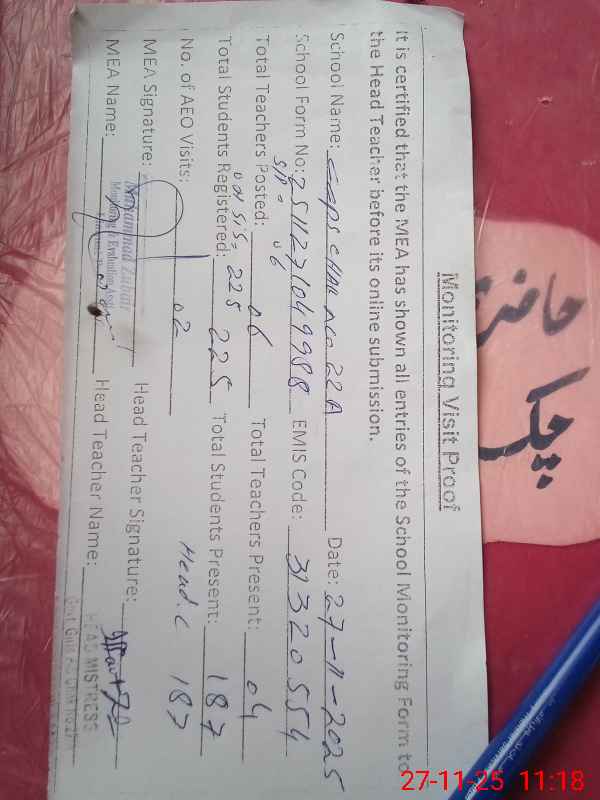 حاضری
چیک
Monitoring Visit Proof
It is certified that the MEA has shown all entries of the School Monitoring Form to
the Head Teacher before its online submission.
School Name: GGPS CHAK NO 22A Date: 27-11-2025
School Form No: 2511271049988 EMIS Code: 31320554
SIP = 06
Total Teachers Posted: 06 Total Teachers Present: 04
Total Students Registered: 225 Total Students Present: 187
on SIS = 225 Head.C 187
No. of AEO Visits: 02
MEA Signature: Head Teacher Signature:
Muhammad Zubair
Monitoring & Evaluation
MEA Name: Head Teacher Name:
HEAD MISTRESS
27-11-25 11:18